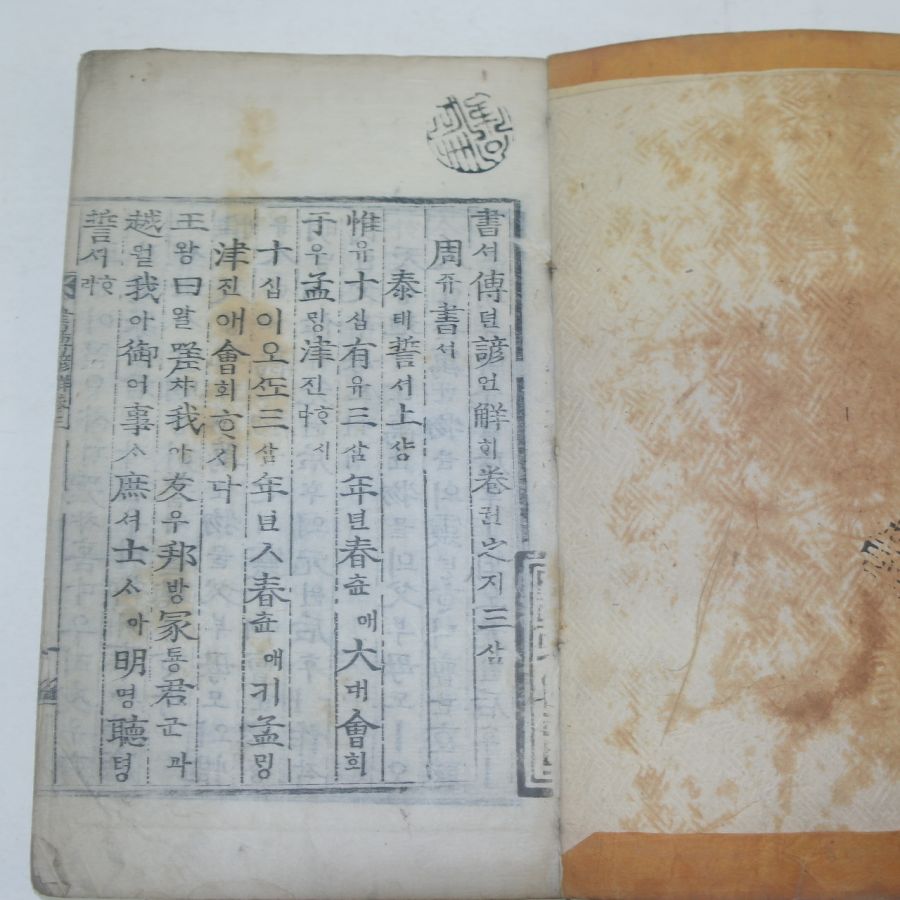 書셔傳뎐諺언觧ᄒᆡ卷권之지三삼
周쥬書셔
泰태誓셔上샹
惟유十십有유三삼年년春츈애大대會회
于우孟ᄆᆡᆼ津진ᄒᆞ시다
十십이오ᄯᅩ三삼年년ㅅ春츈애키孟ᄆᆡᆼ
津진애會회ᄒᆞ시다
王왕曰왈嗟챠我아友우邦방冢툥君군과
越월我아御어事ᄉᆞ庶셔士ᄉᆞ아明명聽텽
誓셔ᄒᆞ라